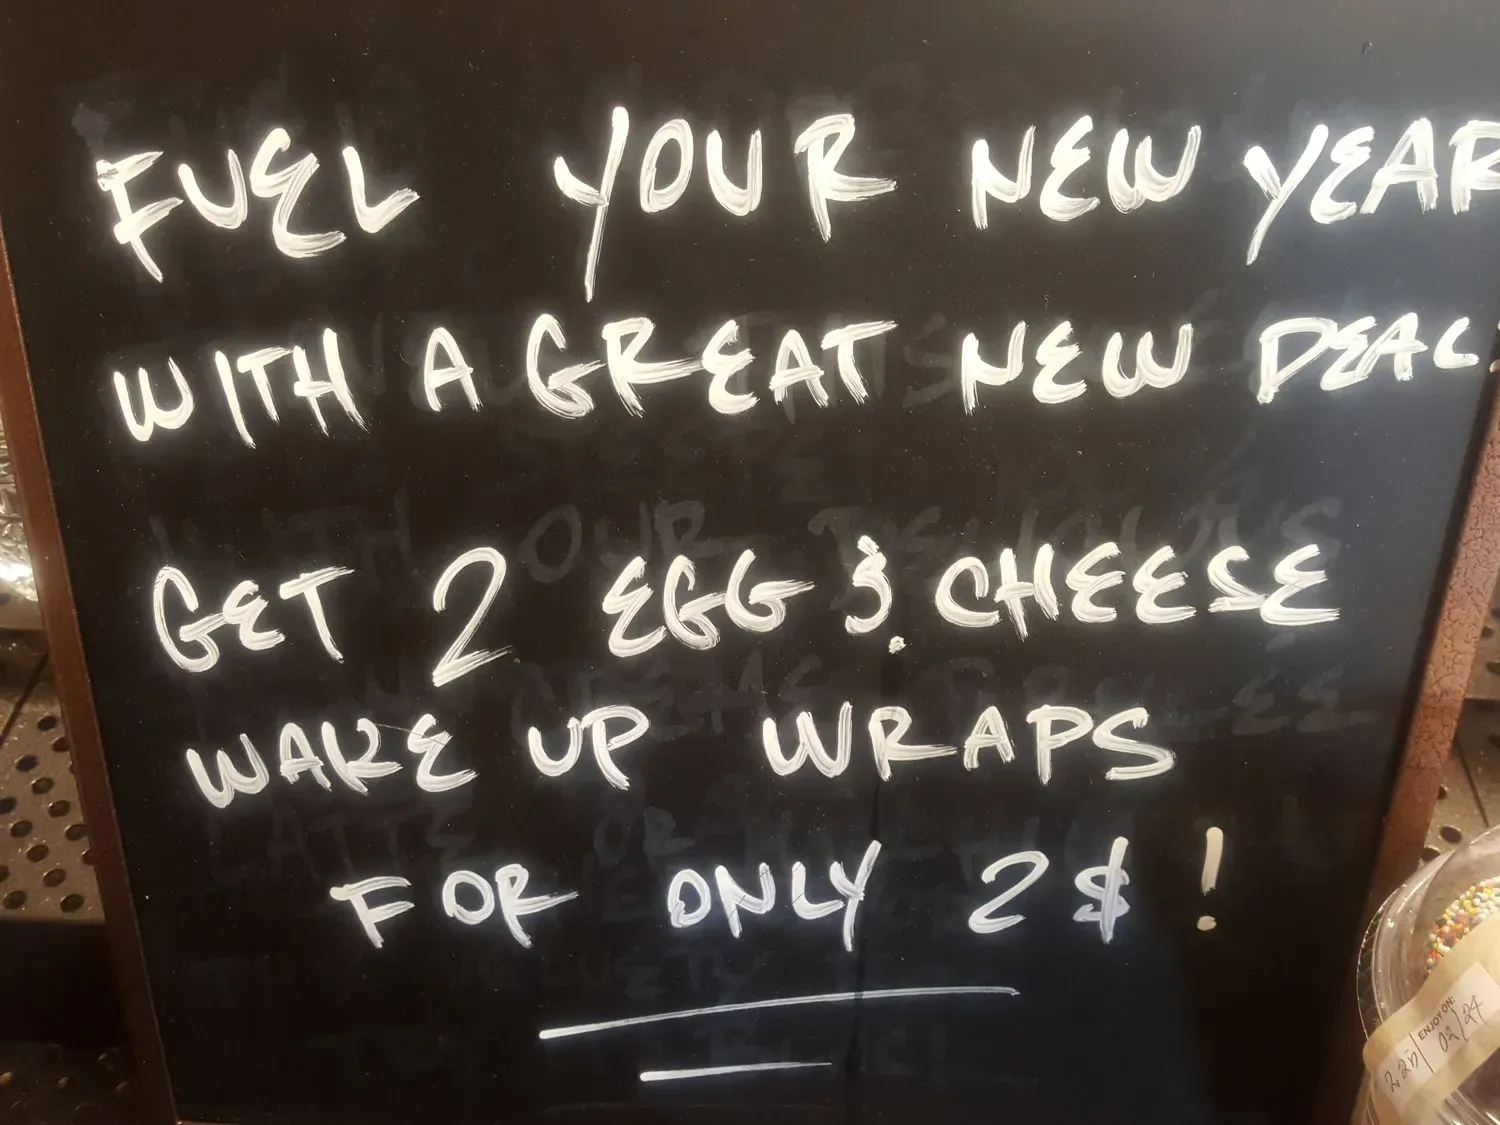 FUEL YOUR NEW YEAR
WITH A GREAT NEW DEAL.
GET 2 EGG & CHEESE
WAKE UP WRAPS
FOR ONLY 2$!
ENJOY ON: